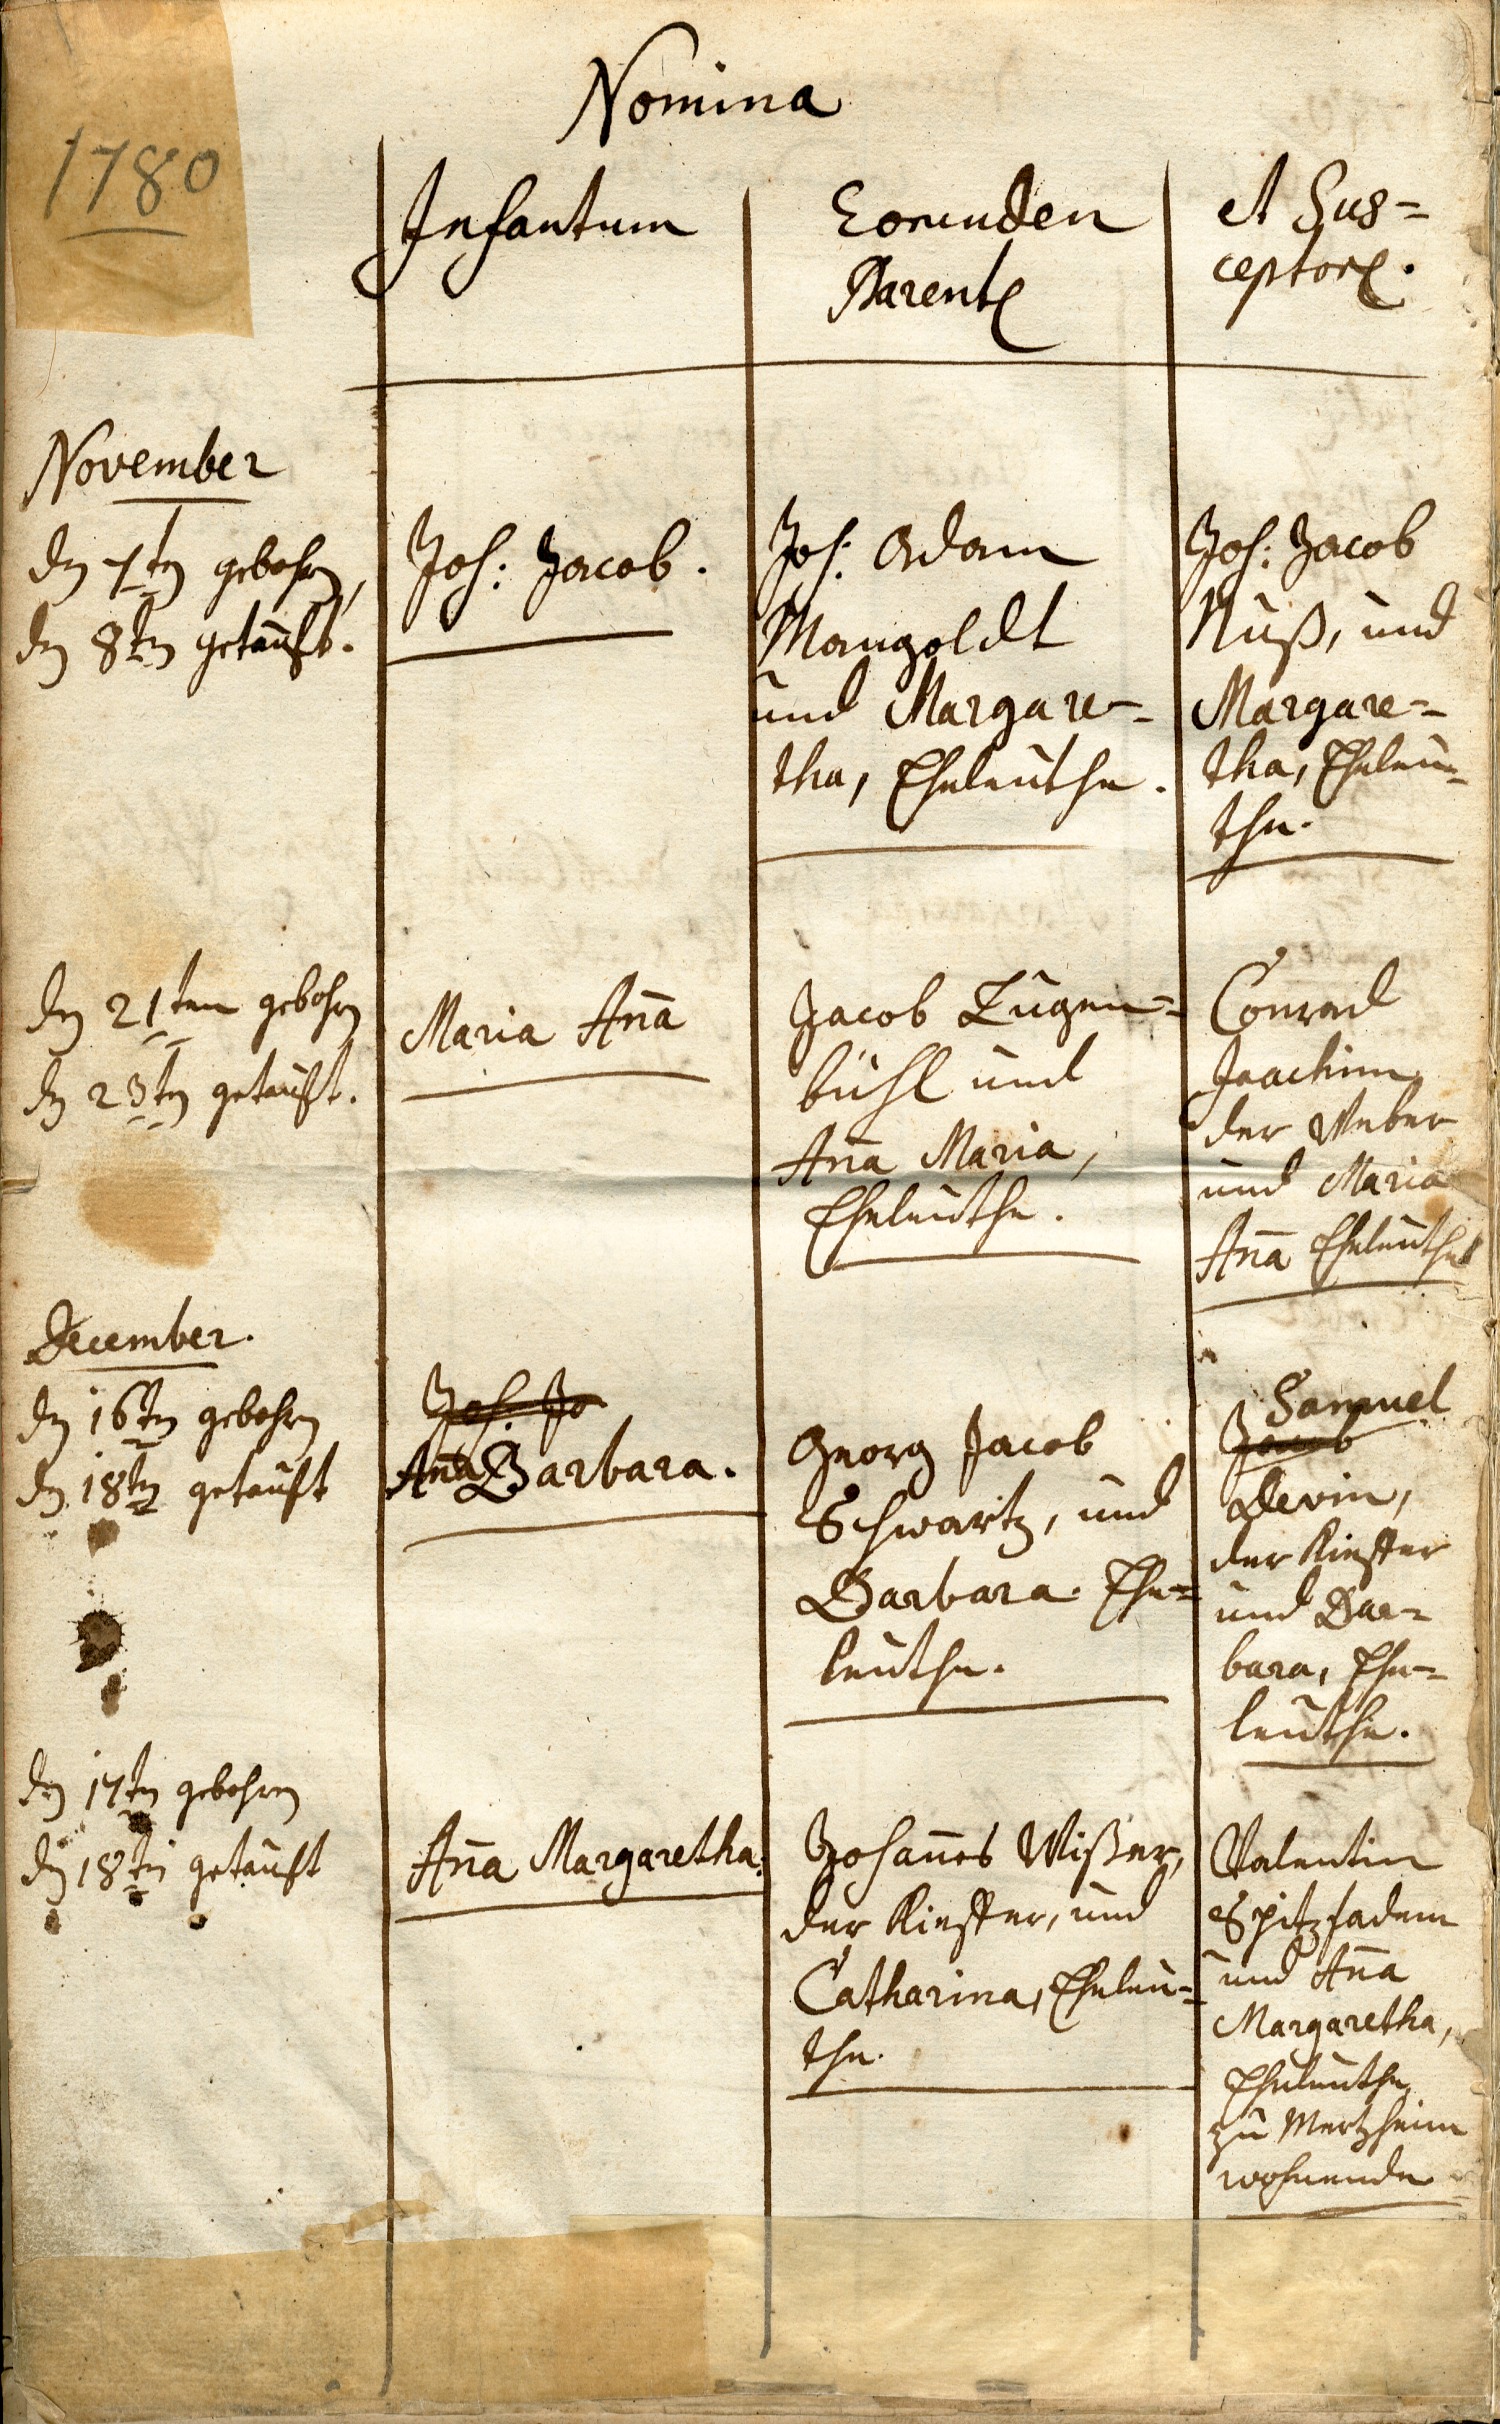 1780
Nomina
Infantum
Eorunden
Parent
et Sus=
ceptor.
November
den 7ten gebohren,
den 8ten getaufft.
Joh: Jacob.
Joh: Adam
Mangoldt
und Margare=
tha, Eheleuthe.
Joh: Jacob
Nuß, und
Margare=
tha, Eheleu=
the.
den 21ten gebohren
den 23ten getaufft.
Maria Ana
Jacob Lugen=
bühl und
Ana Maria,
Eheleuthe.
Conrad
Joachim
der Weber
und Maria
Ana Eheleuthe
December.
den 16ten gebohren
den 18ten getaufft
Joh. Ja
Ana Barbara.
Georg Jacob
Schwartz, und
Barbara Ehe=
leuthe.
Samuel
Jacob
Devin,
der Kieffer
und Bar=
bara, Ehe=
leuthe.
den 17ten gebohren
den 18ten getaufft
Ana Margaretha.
Johanes Wißer,
der Kieffer, und
Catharina, Eheleu=
the.
Valentin
Spitzfadem
und Ana
Margaretha,
Eheleuthe,
zu Mertzheim
wohnende